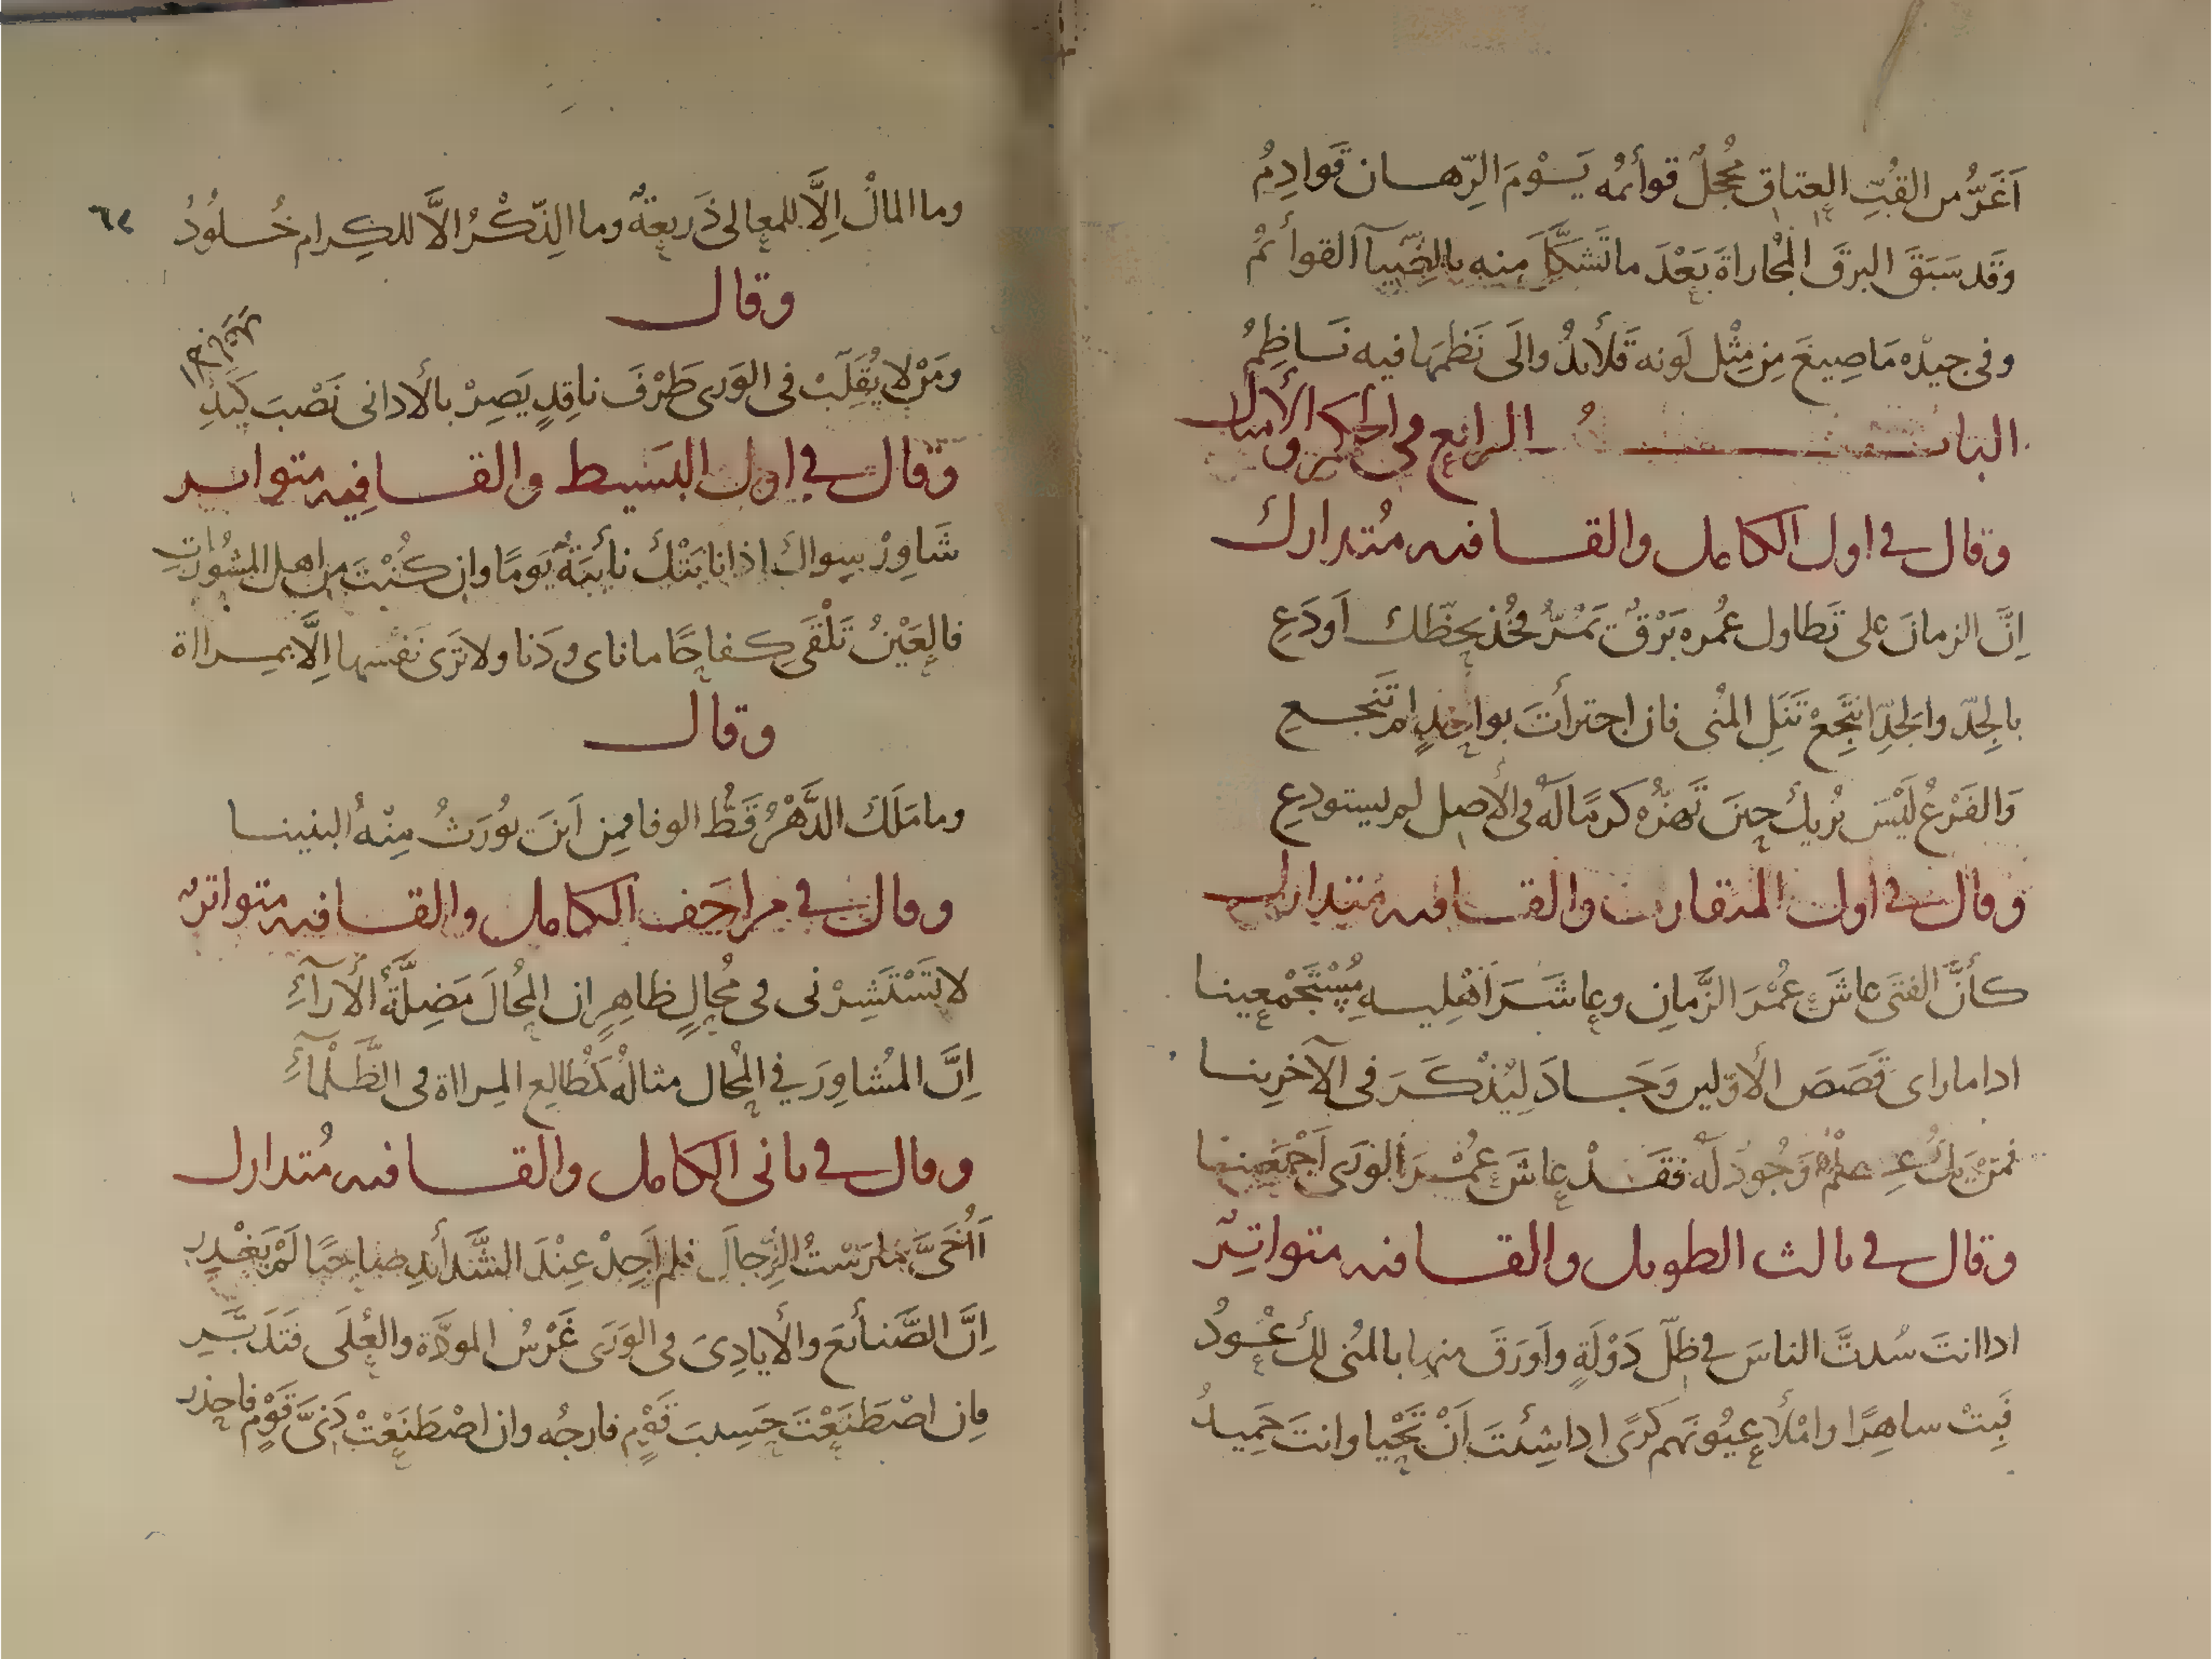 اَغَرُّ من القُبِّ العِتاق مُحجلٌ قوائمُه يَـوْمَ الرِّهـان قَوادِمُ
وقَد سَبَقَ البرقَ المُجاراةَ بَعْدَ ما تَشَكَّل منه بالضيآ القوائمُ
وفى جيده مَا صِيغَ مِن مِثْل لَونه قَلائدُ والَى نَظمَها فيه نَـاظِمُ
البابُ الرابع فى الحكم والأمثال
وقال فى اول الكامل والقـافيه مُتدارك
اِنَّ الزمانَ على تَطاول عُمره بَرْقٌ تَمُرُّ فخُذ بحَظّك اَو دَعِ
بالجِدّ والجَدِّ انتَجِعْ تَنَلِ المُنى فان اجتزأتَ بواحدٍ لم تَنجـعِ
وَالفَرْعُ لَيْسَ بُريكَ حِينَ تَهزُّه كرمًا لَهُ فى الأصل لم يستودعِ
وقال فى اول المتقارب والقـافيه متدارك
كأنَّ الفتَى عاشَ عُمْرَ الزَّمانِ وعاشَـرَ اَهْلِيـه مُسْتَجْمعِينـا
اذا ما راى قَصَصَ الأوّلين وَجَـادَ لِيُذْكَـرَ فى الآخرينـا
فمَنْ يَكُ عِـلْمٌ وَجُودٌ لَهُ فقَـدْ عاشَ عُمْـرَ الوَرى اَجْمَعينـا
وقال فى ثالث الطويل والقـافيه متواتِرٌ
اذا انتَ سُدتَّ الناسَ فى ظلّ دَوْلَةٍ واَورَقَ منها بالمُنى لكَ عُـودُ
فَبِتْ ساهِرًا وامْلأ عيُونَهم كَرًى اذا شِئتَ اَنْ تَحْيا وانتَ حَمِيـدُ
٦٢
وما المالُ اِلَّا للمعالى ذَريعةٌ وما الذِّكْرُ الَّا للكِرام خُـلُودُ
وقال
ومَنْ لا يُقَلِّبْ فى الوَرى طَرْفَ ناقِدٍ يَصِرْ بالأدانى نَصْبَ كَيْدِ
وقال فى اول البَسَيط والقـافِيه متواتر
شَاوِرْ سِواكَ اذا نابَتْكَ نائبَةٌ يَومًا وان كُنْتَ من اهل المشُوراتِ
فالعَيْنُ تَلْقَى كـفاحًا ما ناى ودَنا ولا تَرَى نَفسَها اِلَّا بمِـرااة
وقال
وما مَلَكَ الدَّهْرُ قَطُّ الوفا فمِن اَينَ يُورَثُ مِنْهُ البنينـا
وقال فى مراحَف الكامل والقـافيه متواترٌ
لا تَسْتَشِرْنى فى مُحالٍ ظاهِرٍ ان المُحالَ مَضِلَّةُ الأرآءِ
اِنَّ المُشاوِرَ فى المُحال مثالُهُ كمُطالِع المِرااة فى الظَّلْمآءِ
وقال فى ثانى الكامل والقـافيه مُتدارك
اَاُخَىَّ مارَسْتُ الرِّجالَ فلم اَجِدْ عِنْدَ الشَّدائدِ صاحبًا لَمْ يَغْـدِرِ
اِنَّ الصَّنائعَ والأيادِىَ فى الوَرَى غَرْسُ المودَّة والعُلَى فتَدَبَّـرِ
فان اصْطَنَعْتَ حَسِيبَ قَوْمٍ فارجُه وان اصْطَنَعْتَ دَنىَّ قَوْمٍ فاحذرِ